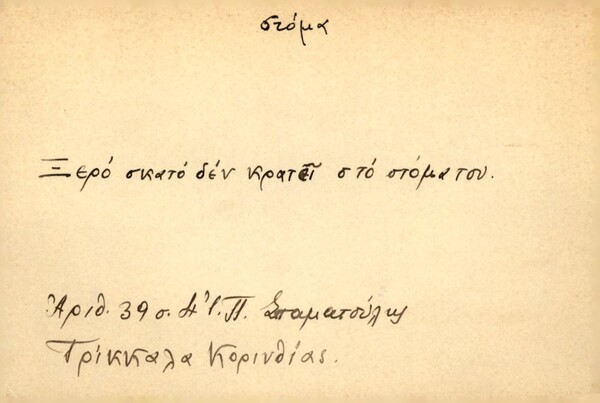 στόμα
Ξερό σκατό δέν κρατεῖ στό στόμα του.
Ἀριθ. 39 σ. Π. Σταματούλης
Τρίκκαλα Κορινθίας.